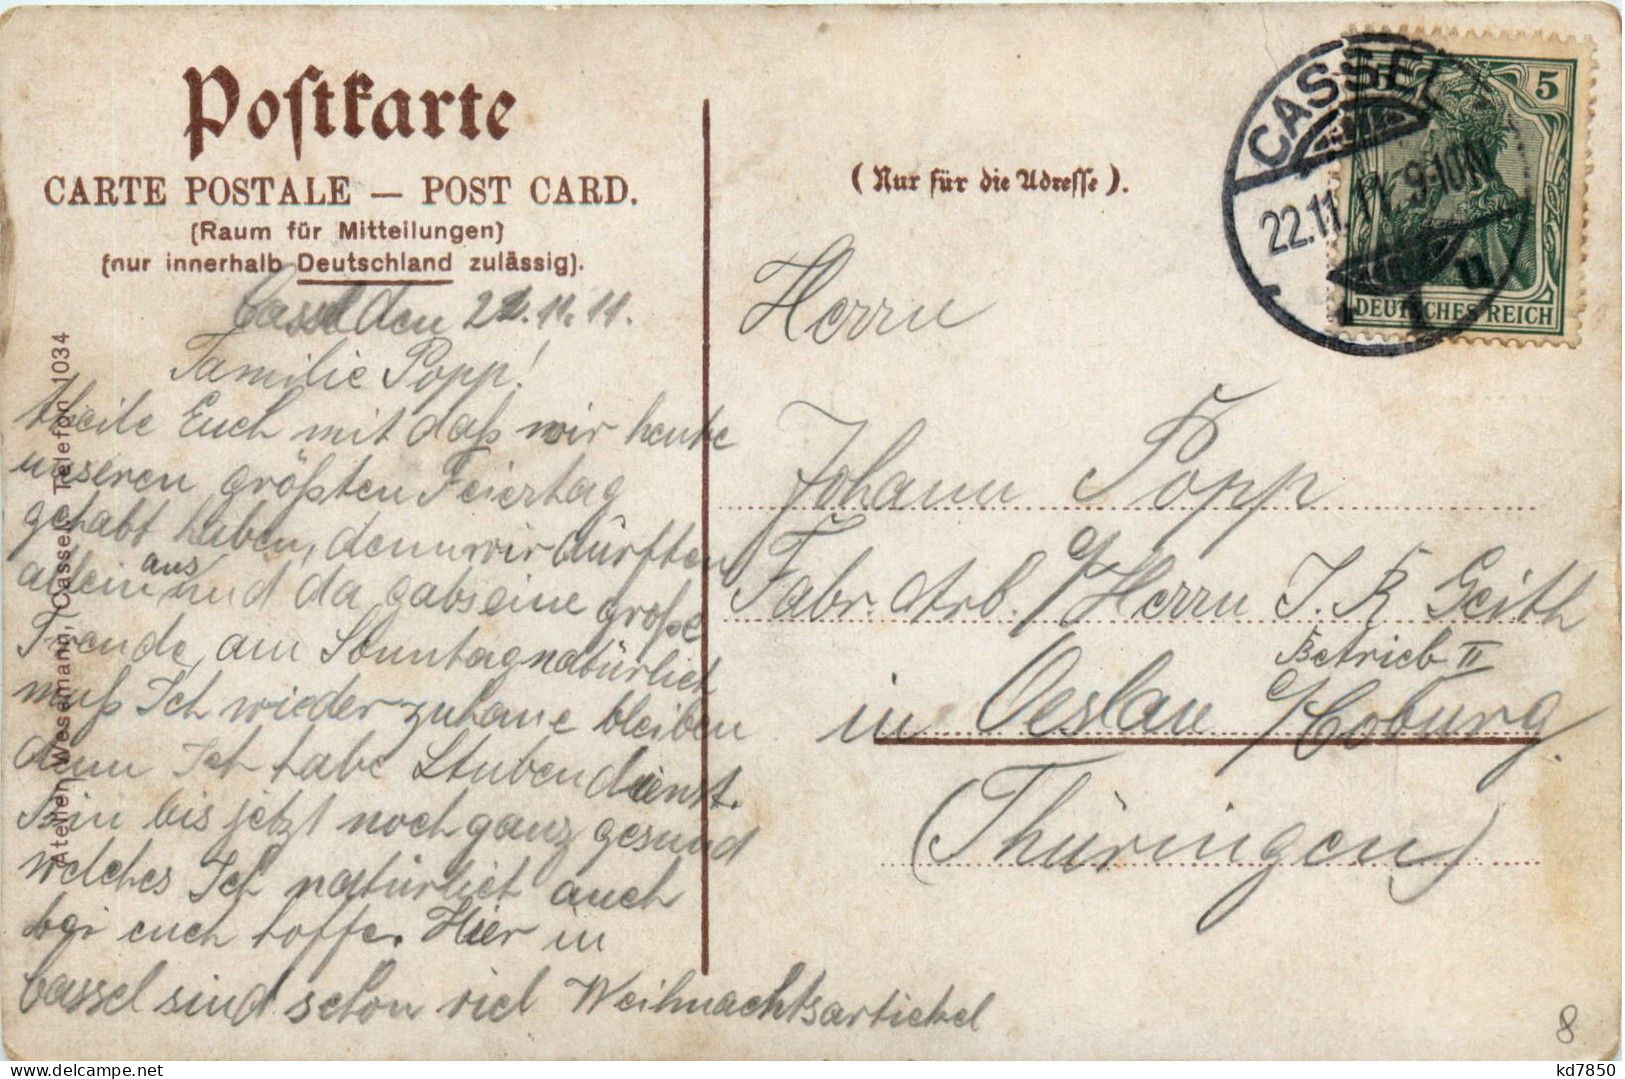 Postkarte
CARTE POSTALE — POST CARD.
(Raum für Mitteilungen)
(nur innerhalb Deutschland zulässig).
Cassel den 22.11.11.
Familie Popp!
theile Euch mit daß wir heute
unseren größten Feiertag
gehabt haben, denn wir dürften
allein aus und da gabs eine große
Freude, am Sonntag natürlich
muß Ich wieder zuhaue bleiben
denn Ich habe Stubendienst.
Bin bis jetzt noch ganz gesund
welches Ich natürlich auch
bei euch hoffe. Hier in
Cassel sind schon viel Weihnachtsartickel
Atelier Wesemann, Cassel, Telefon 1034
(Nur für die Adresse).
CASSEL
22.11.11. 9-10N
5
5
DEUTSCHES REICH
Herrn
Johann Popp
Fabr. Arb. c/Herrn J. R. Geith
Betrieb II
in Oeslau c/Coburg.
(Thüringen)
8
kd7850